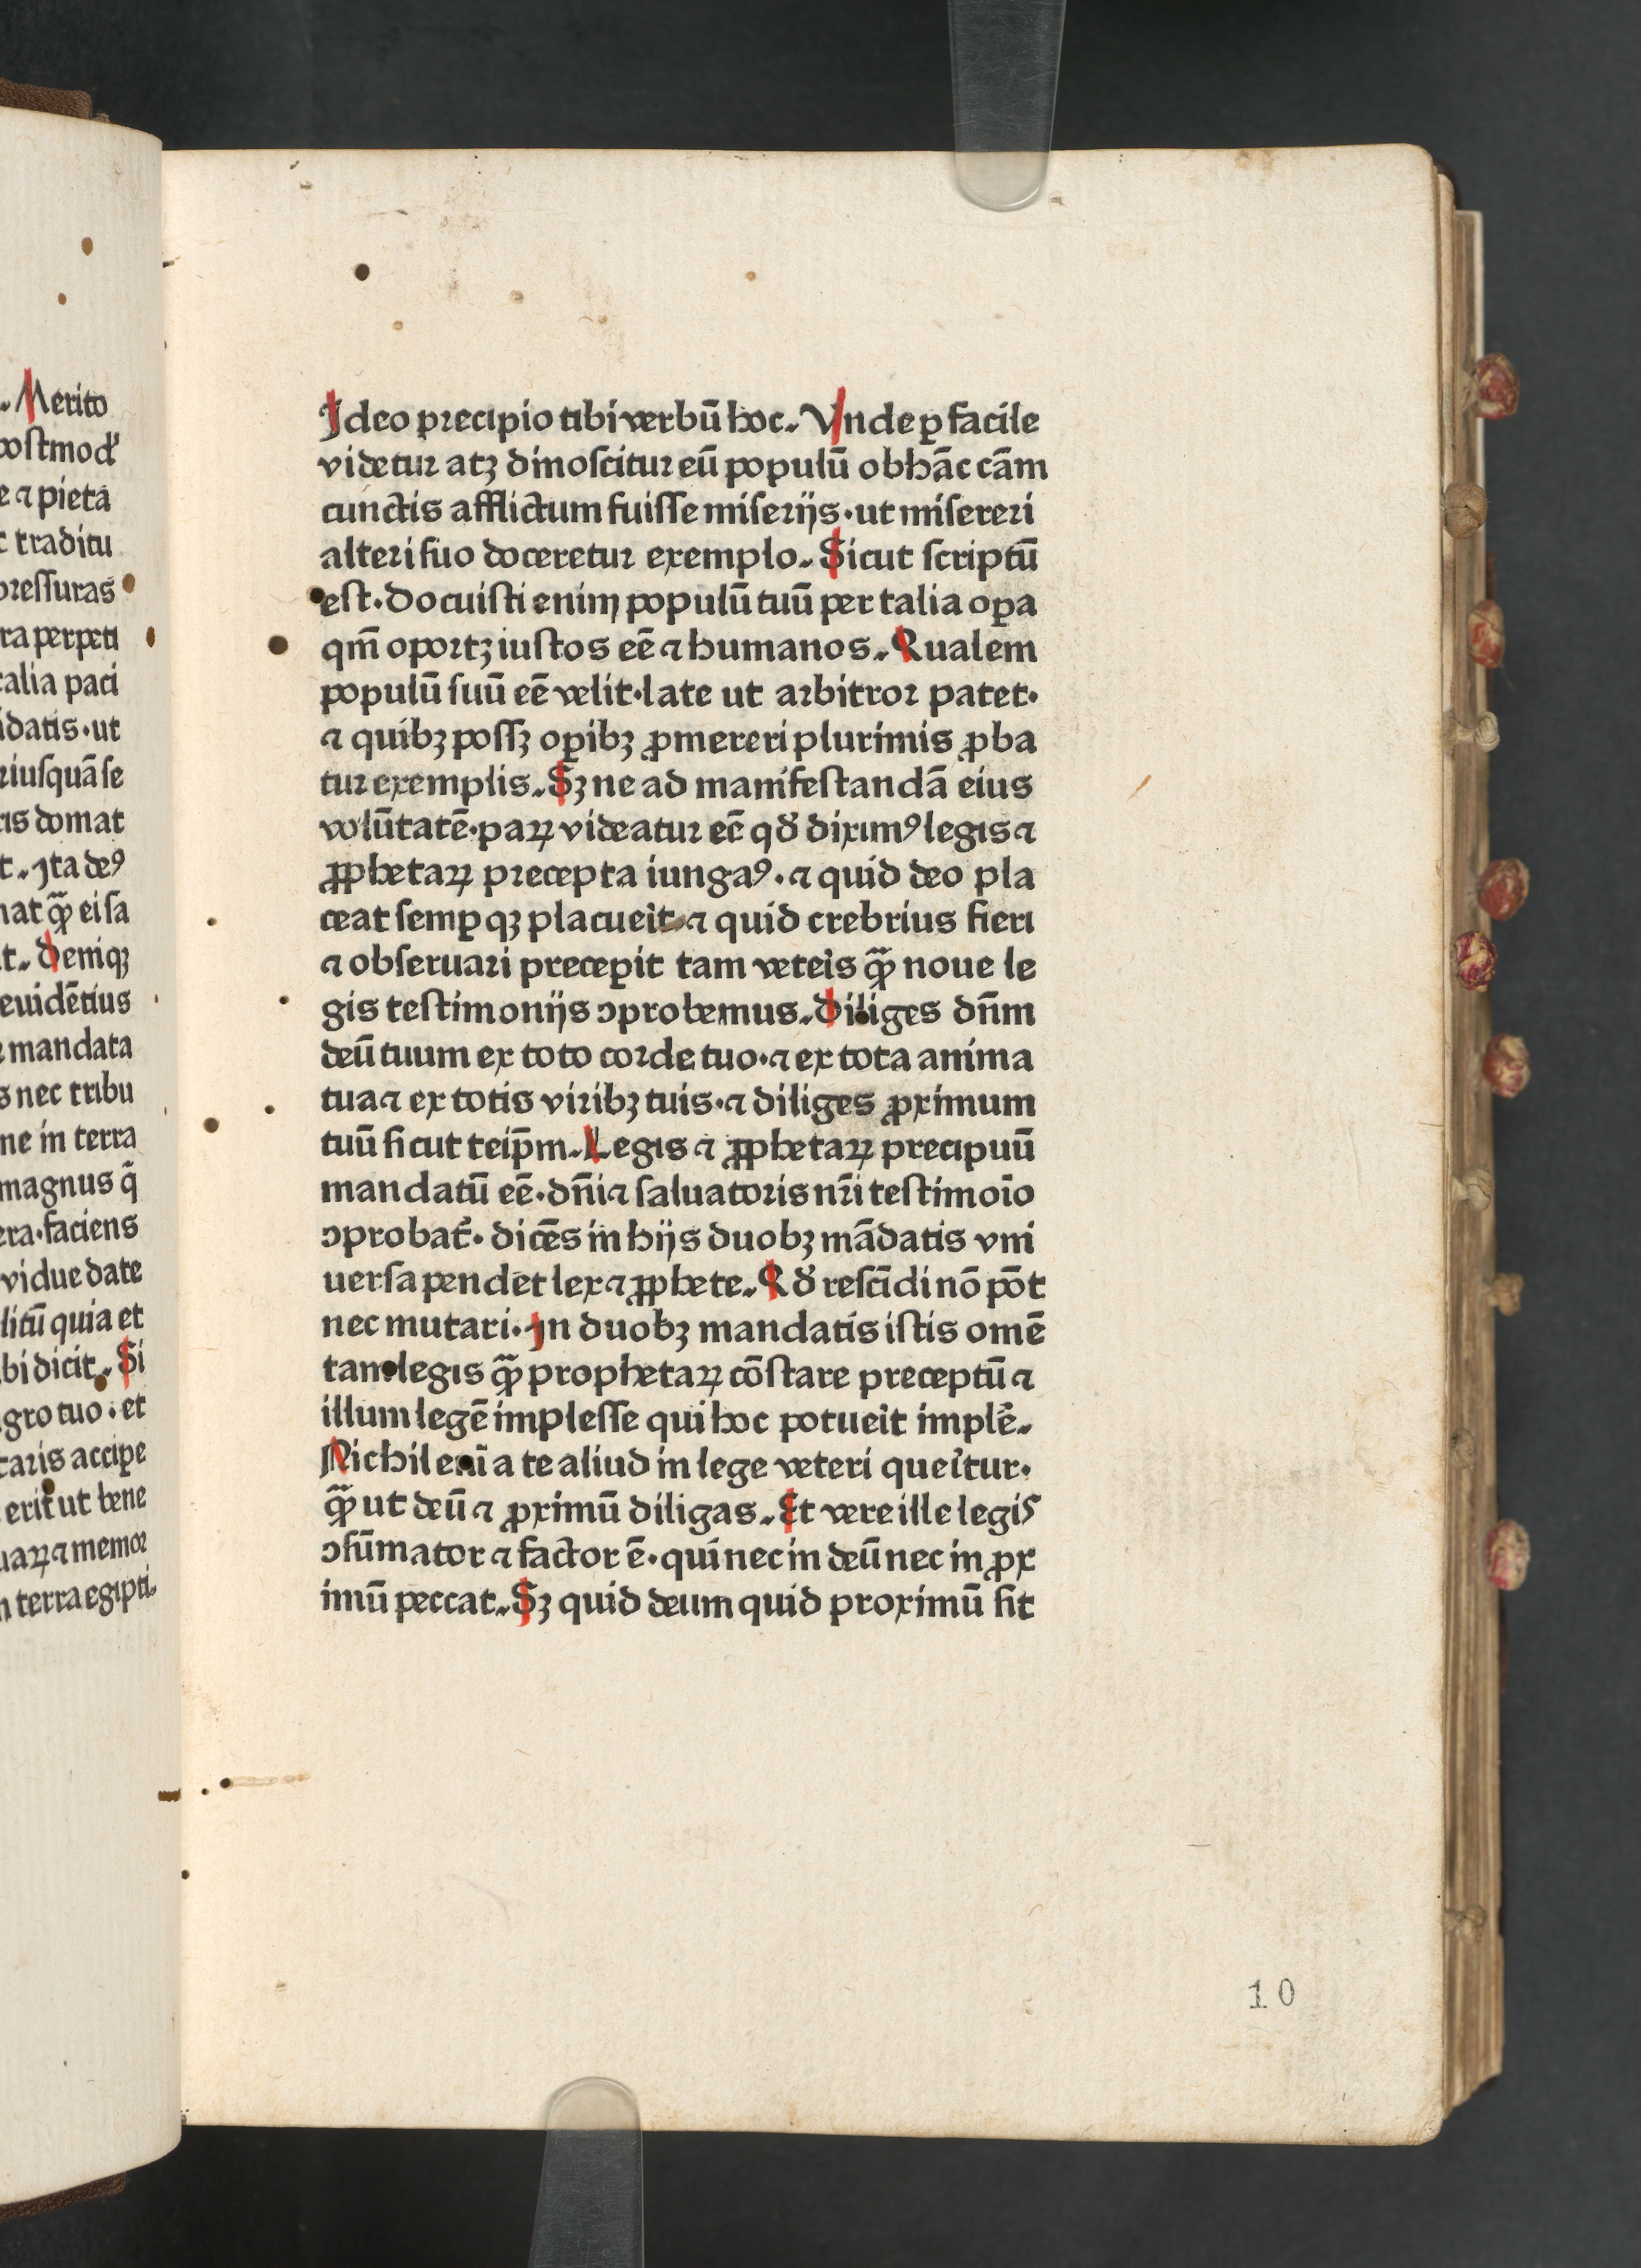 . Merito
postmod̕
e ⁊ pieta
t traditu
pressuras
ra perpeti
talia paci
idatis · ut
riusquā se
ris domat
t. Ita deꝰ
nat qͣꝫ ei sa
t. Deniqꝫ
euidētius
mandata
s nec tribu
ne in terra
magnus q̄
era · faciens
vidue date
litū quia et
bi dicit. Si
gro tuo · et
taris accipe
erit ut bene
uaꝝ ⁊ memor
n terra egipti.
Ideo precipio tibi verbū hoc. Vnde ꝑ facile
videtur atꝫ dinoscitur eū populū ob hāc cām
cunctis afflictum fuisse miserijs · ut misereri
alteri suo doceretur exemplo. Sicut scriptū
est · docuisti enim populū tuū per talia oꝑa
qm̄ oportꝫ iustos eē ⁊ humanos. Qualem
populū suū eē velit · late ut arbitror patet ·
⁊ quibꝫ possꝫ oꝑibꝫ ꝓmereri plurimis ꝓba
tur exemplis. Sꝫ ne ad manifestandā eius
volūtatē · paꝝ videatur eē qđ diximꝰ legis ⁊
ꝓphetaꝝ precepta iungaꝰ · ⁊ quid deo pla
ceat semꝑ qꝫ placueit ⁊ quid crebrius fieri
⁊ obseruari preceꝑit tam veteis qͣꝫ noue le
gis testimonijs ꝯprobemus. Diliges dn̄m
deū tuum ex toto corde tuo · ⁊ ex tota anima
tua ⁊ ex totis viribꝫ tuis · ⁊ diliges ꝓximum
tuū sicut teip̄m. Legis ⁊ ꝓphetaꝝ precipuū
mandatū eē · dn̄i ⁊ saluatoris nr̄i testimoīo
ꝯprobat̄ · dicēs in hijs duobꝫ mādatis vni
uersa pendēt lex ⁊ ꝓphete. Qđ rescīdi nō pōt
nec mutari. In duobꝫ mandatis istis omē
tam legis qͣꝫ prophetaꝝ cōstare preceptū ⁊
illum legē implesse qui hoc potueit implē.
Nichil eni̅ a te aliud in lege veteri queitur ·
qͣꝫ ut deū ⁊ ꝓximū diligas. Et vere ille legis
ꝯsūmator ⁊ factor ē · qui nec in deū nec in ꝓx
imū peccat. Sꝫ quid deum quid proximū sit
10